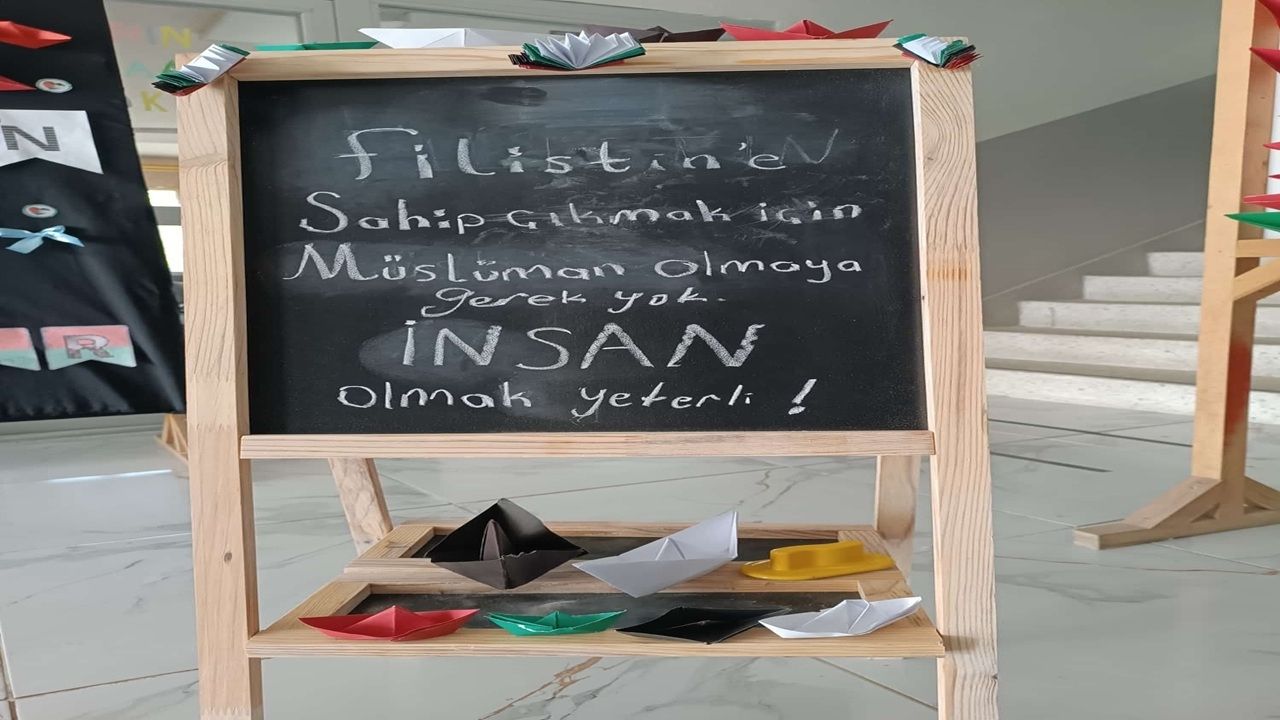 filistin'e
Sahip çıkmak için
Müslüman olmaya
gerek yok.
İNSAN
olmak yeterli !
N
R